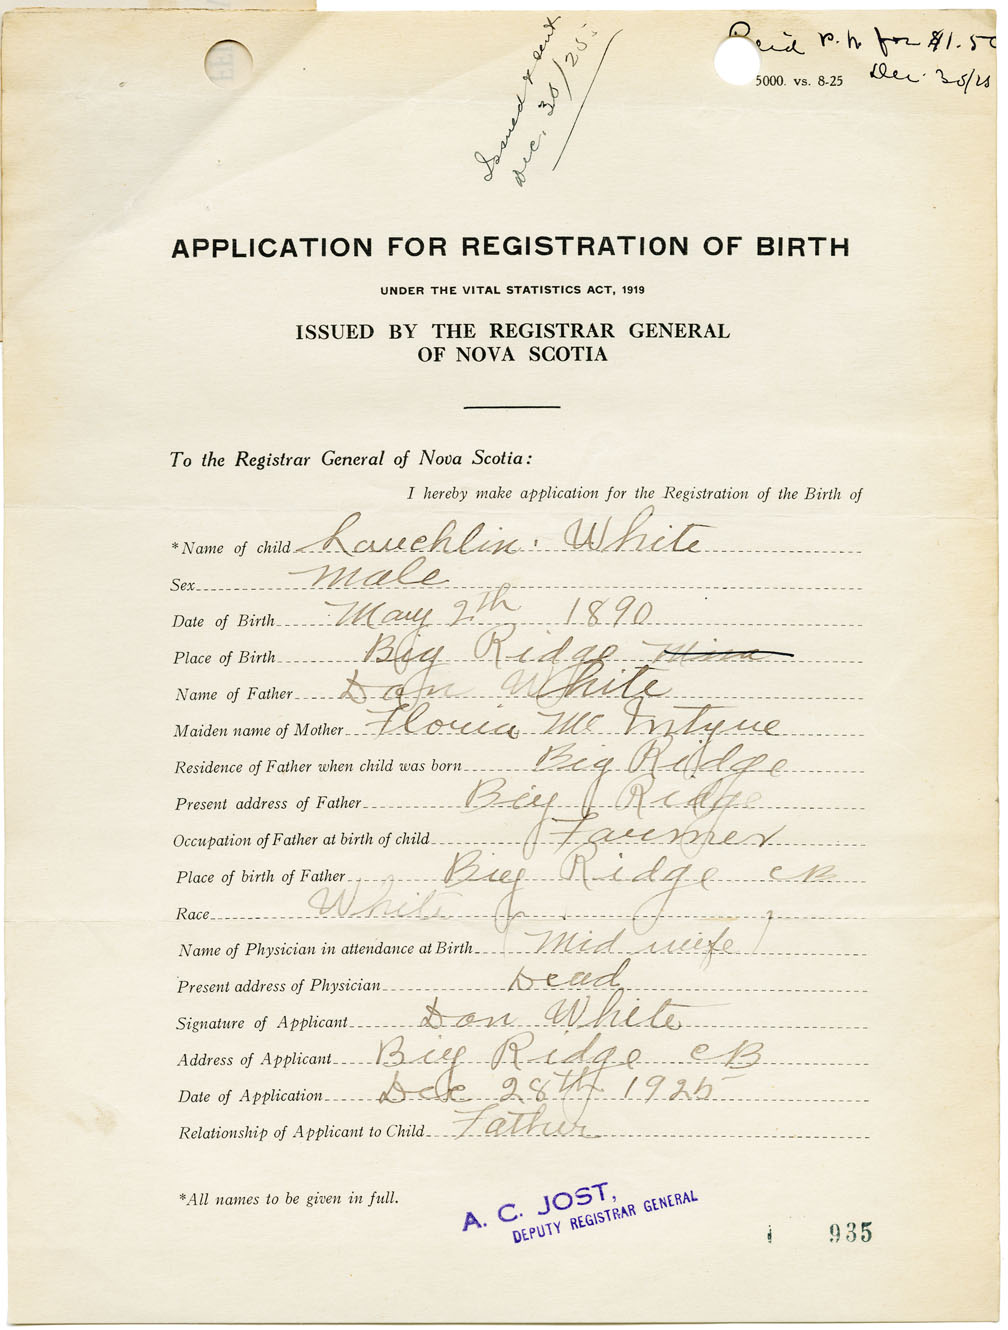 Paid P.N for $1.50
Dec. 30/25
5000. vs. 8-25
Issued & sent
Dec. 30/25.
APPLICATION FOR REGISTRATION OF BIRTH
UNDER THE VITAL STATISTICS ACT, 1919
ISSUED BY THE REGISTRAR GENERAL
OF NOVA SCOTIA
To the Registrar General of Nova Scotia:
I hereby make application for the Registration of the Birth of
*Name of child Lauchlin. White
Sex male
Date of Birth May 2th 1890
Place of Birth Big Ridge Mira
Name of Father Dan White
Maiden name of Mother Floria Mc Intyre
Residence of Father when child was born Big Ridge
Present address of Father Big Ridge
Occupation of Father at birth of child Farmer
Place of birth of Father Big Ridge CB
Race White
Name of Physician in attendance at Birth Mid wife
Present address of Physician Dead
Signature of Applicant Dan White
Address of Applicant Big Ridge CB
Date of Application Dec 28th 1925
Relationship of Applicant to Child Father
*All names to be given in full.
A. C. JOST,
DEPUTY REGISTRAR GENERAL
935